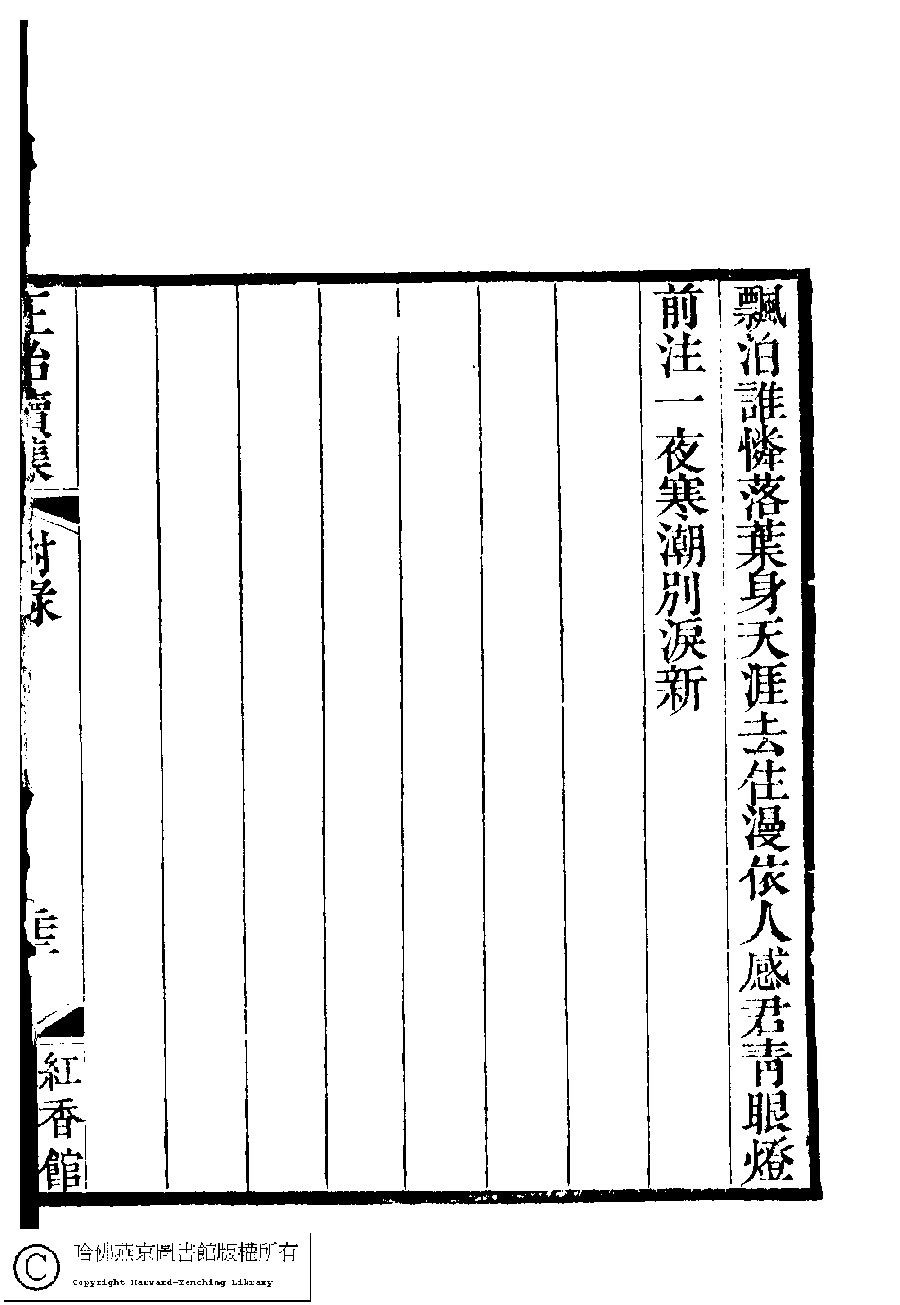 飄泊誰憐落葉身天涯去住漫依人感君青眼燈
前注一夜寒潮別淚新
正始續集
附錄
紅香館
哈佛燕京圖書館版權所有
Copyright Harvard-Yenching Library